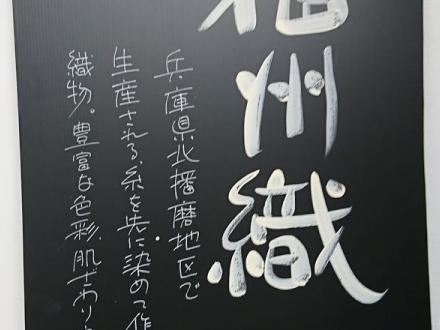 播州織
兵庫県北播磨地区で
生産される、糸を先に染めて作
織物。豊富な色彩、肌ざわり